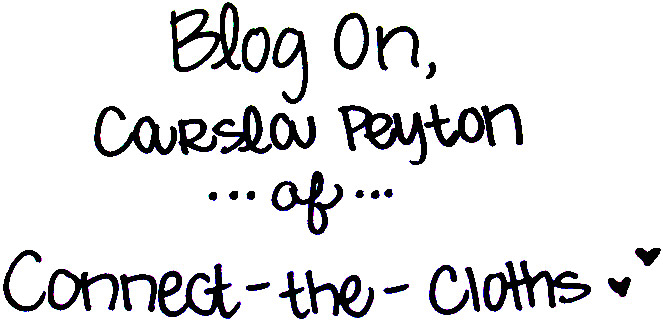 Blog On,
Carsla Peyton
...of...
Connect-the-Cloths